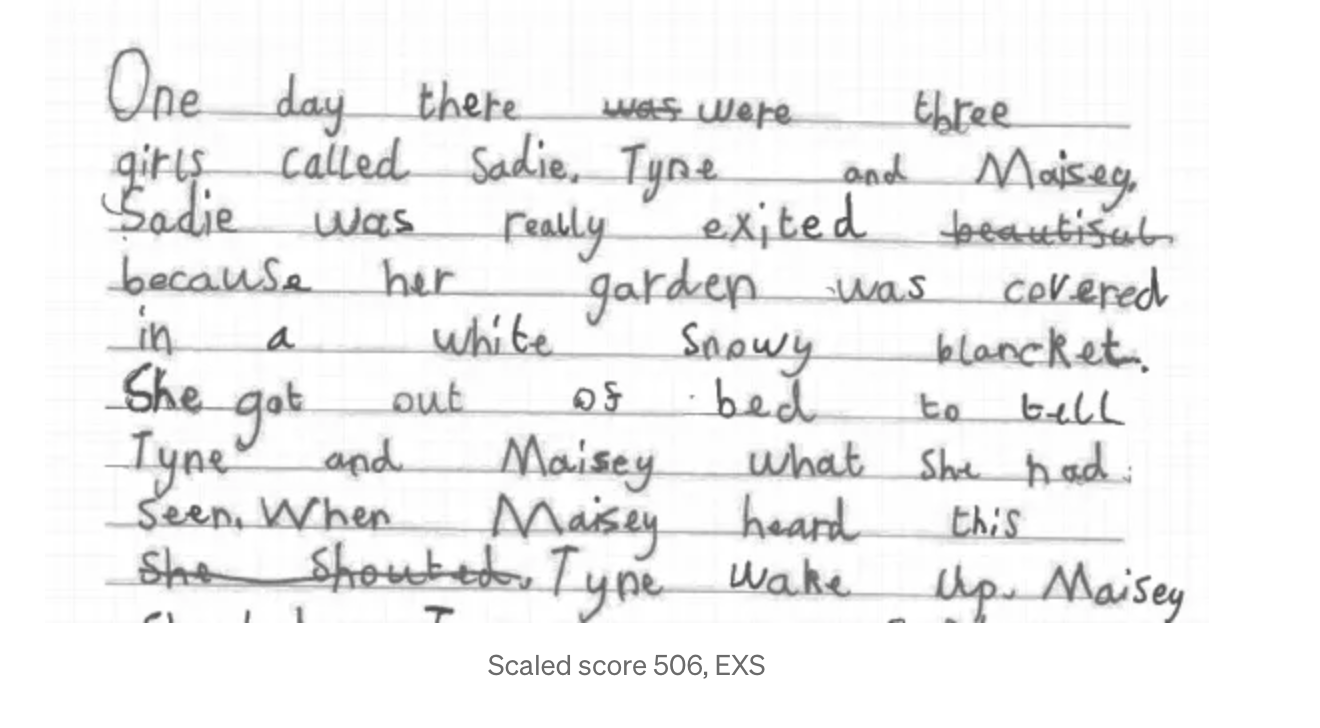 One day there was were three
girls called Sadie. Tyne and Maisey.
Sadie was really exited beautiful
because her garden was covered
in a white Snowy blancket.
She got out of bed to tell
Tyne and Maisey what She had
Seen. When Maisey heard this
She Shouted. Tyne wake Up. Maisey
Scaled score 506, EXS